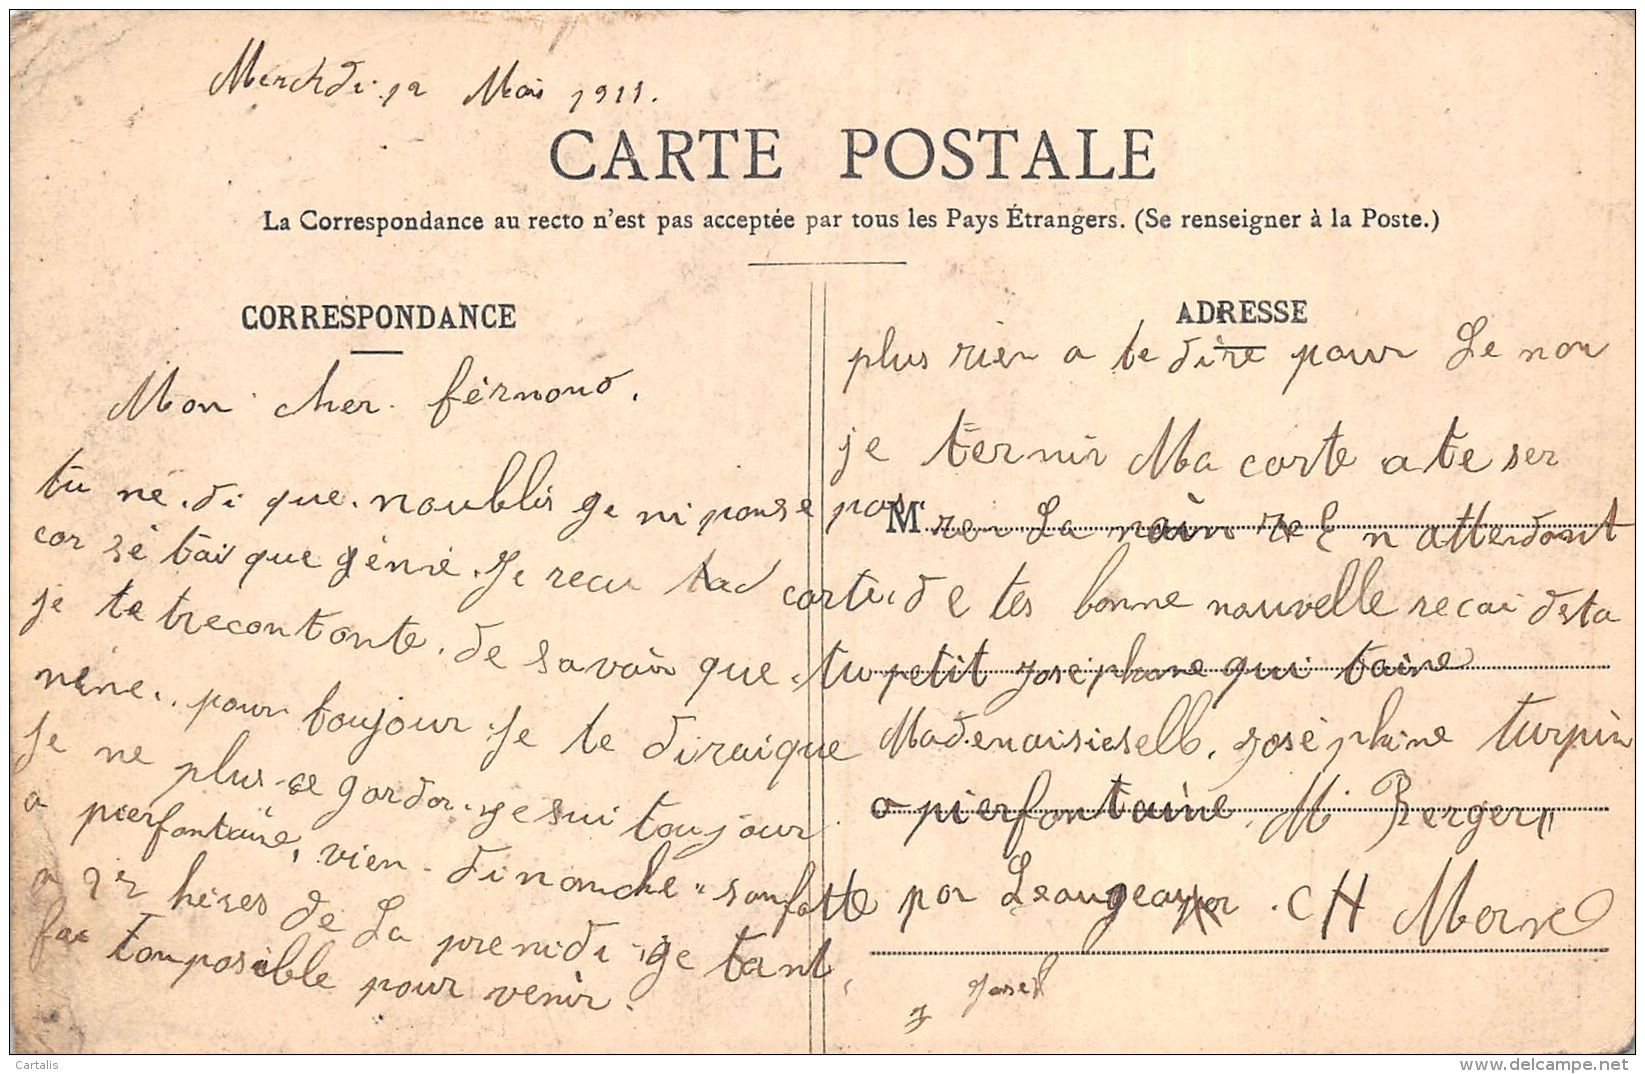 Mercrdi 12 Mai 1911.
CARTE POSTALE
La Correspondance au recto n'est pas acceptée par tous les Pays Étrangers. (Se renseigner à la Poste.)
CORRESPONDANCE
Mon cher férnand.
tu né di que noublis ge ni panse pas
car sé tai que génie. Je recu ta carte
je te trecontante. de savoir que tu
méne pour toujour. Je te diraique
Je ne plus garder. ge sui toujour
a pierfontaine, vien dimanche sanfatte
a 2 r heires de La premidi ge tant
fai tou posible pour venir.
ADRESSE
plus rien a te dire pour Le nou
je ternir Ma carte a te ser
M ren La main En attendant
de tes bonne nouvelle recai deta
petit joséphine qui taime
Mademoisieselle joséphine turpin
a pierfontaine M Berger
par Leaugeauxr . C H Marne
Cartalis
http://www.delcampe.net